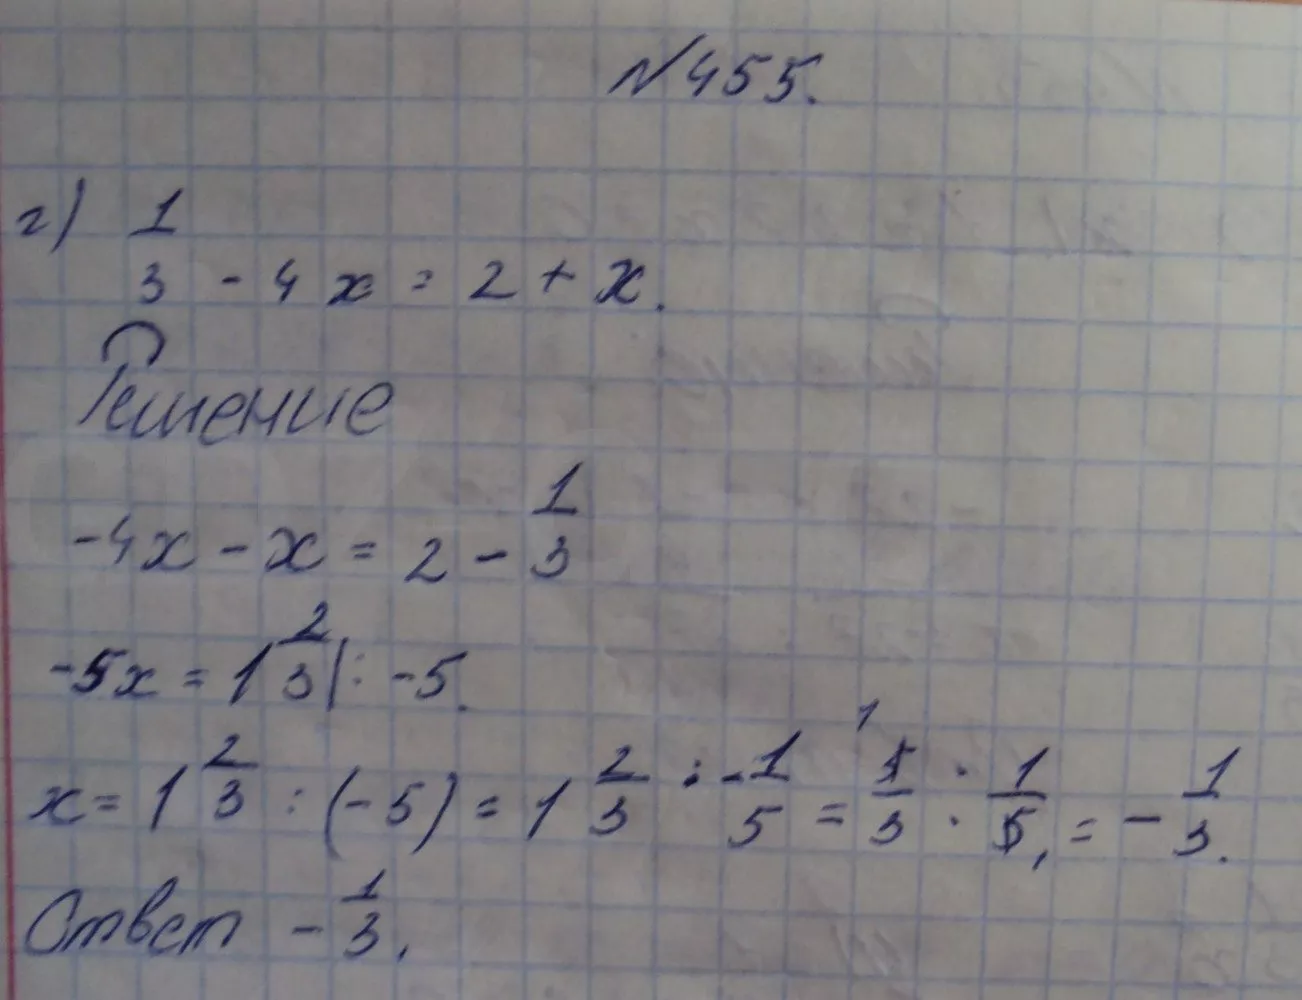 №455.
г) 1/3 - 4x = 2 + x.
Решение
-4x - x = 2 - 1/3
-5x = 1 2/3 |: -5.
x = 1 2/3 : (-5) = 1 2/3 : -1/5 = 5/3 · 1/5 = -1/3.
Ответ -1/3.